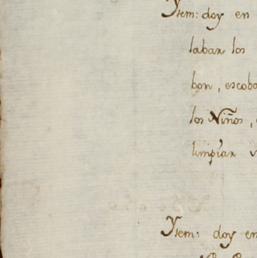 Ytem: doy en
labar los
bon, escoba
los Niños,
limpiar
Ytem: doy en